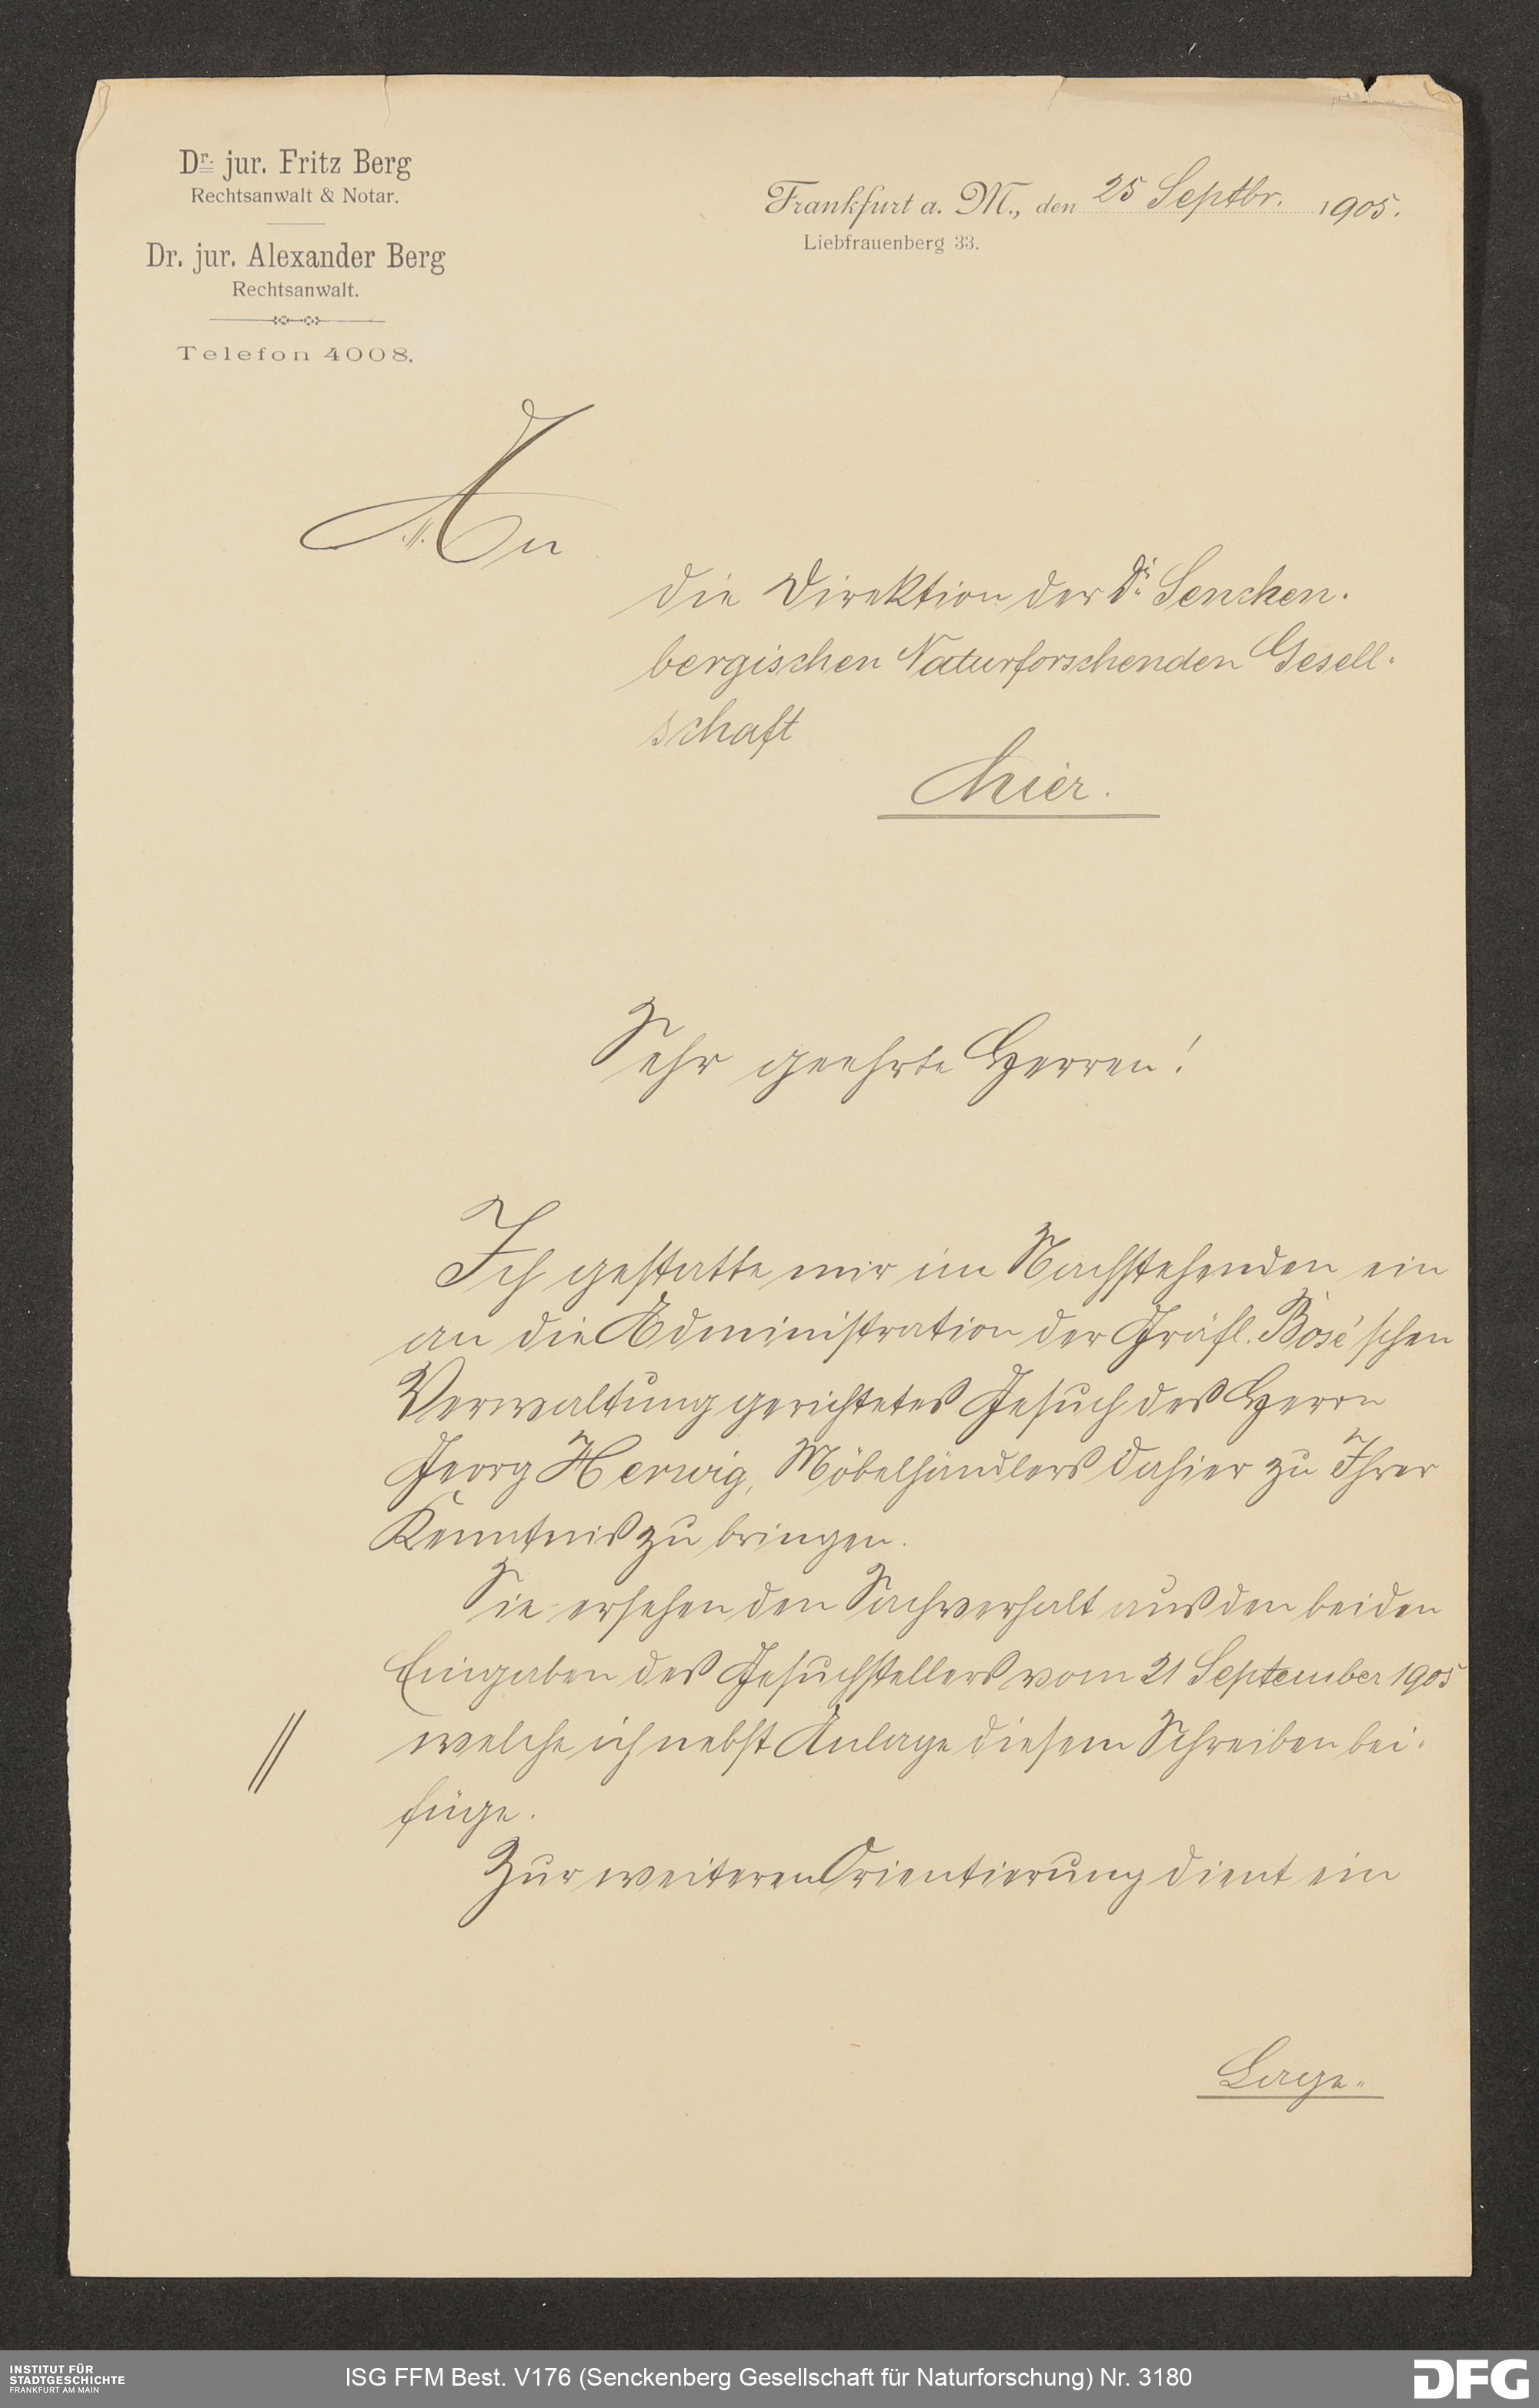 Dr. jur. Fritz Berg
Rechtsanwalt & Notar.
Dr. jur. Alexander Berg
Rechtsanwalt.
Telefon 4008.
Frankfurt a. M., den 25 Septbr. 1905.
Liebfrauenberg 33.
An
die Direktion der Dr. Sencken-
bergischen Naturforschenden Gesell-
schaft
hier.
Sehr geehrte Herren!
Ich gestatte mir im Nachstehenden ein
an die Administration der Gräfl. Bosé'schen
Verwaltung gerichtetes Gesuch des Herrn
Georg Herwig, Möbelhändlers dahier zu Ihrer
Kenntnis zu bringen.
Sie ersehen den Sachverhalt aus den beiden
Eingaben des Gesuchstellers vom 21 September 1905
welche ich nebst Anlage diesem Schreiben bei-
//
füge.
Zur weiteren Orientierung dient ein
Lage-
INSTITUT FÜR
STADTGESCHICHTE
FRANKFURT AM MAIN
ISG FFM Best. V176 (Senckenberg Gesellschaft für Naturforschung) Nr. 3180
DFG